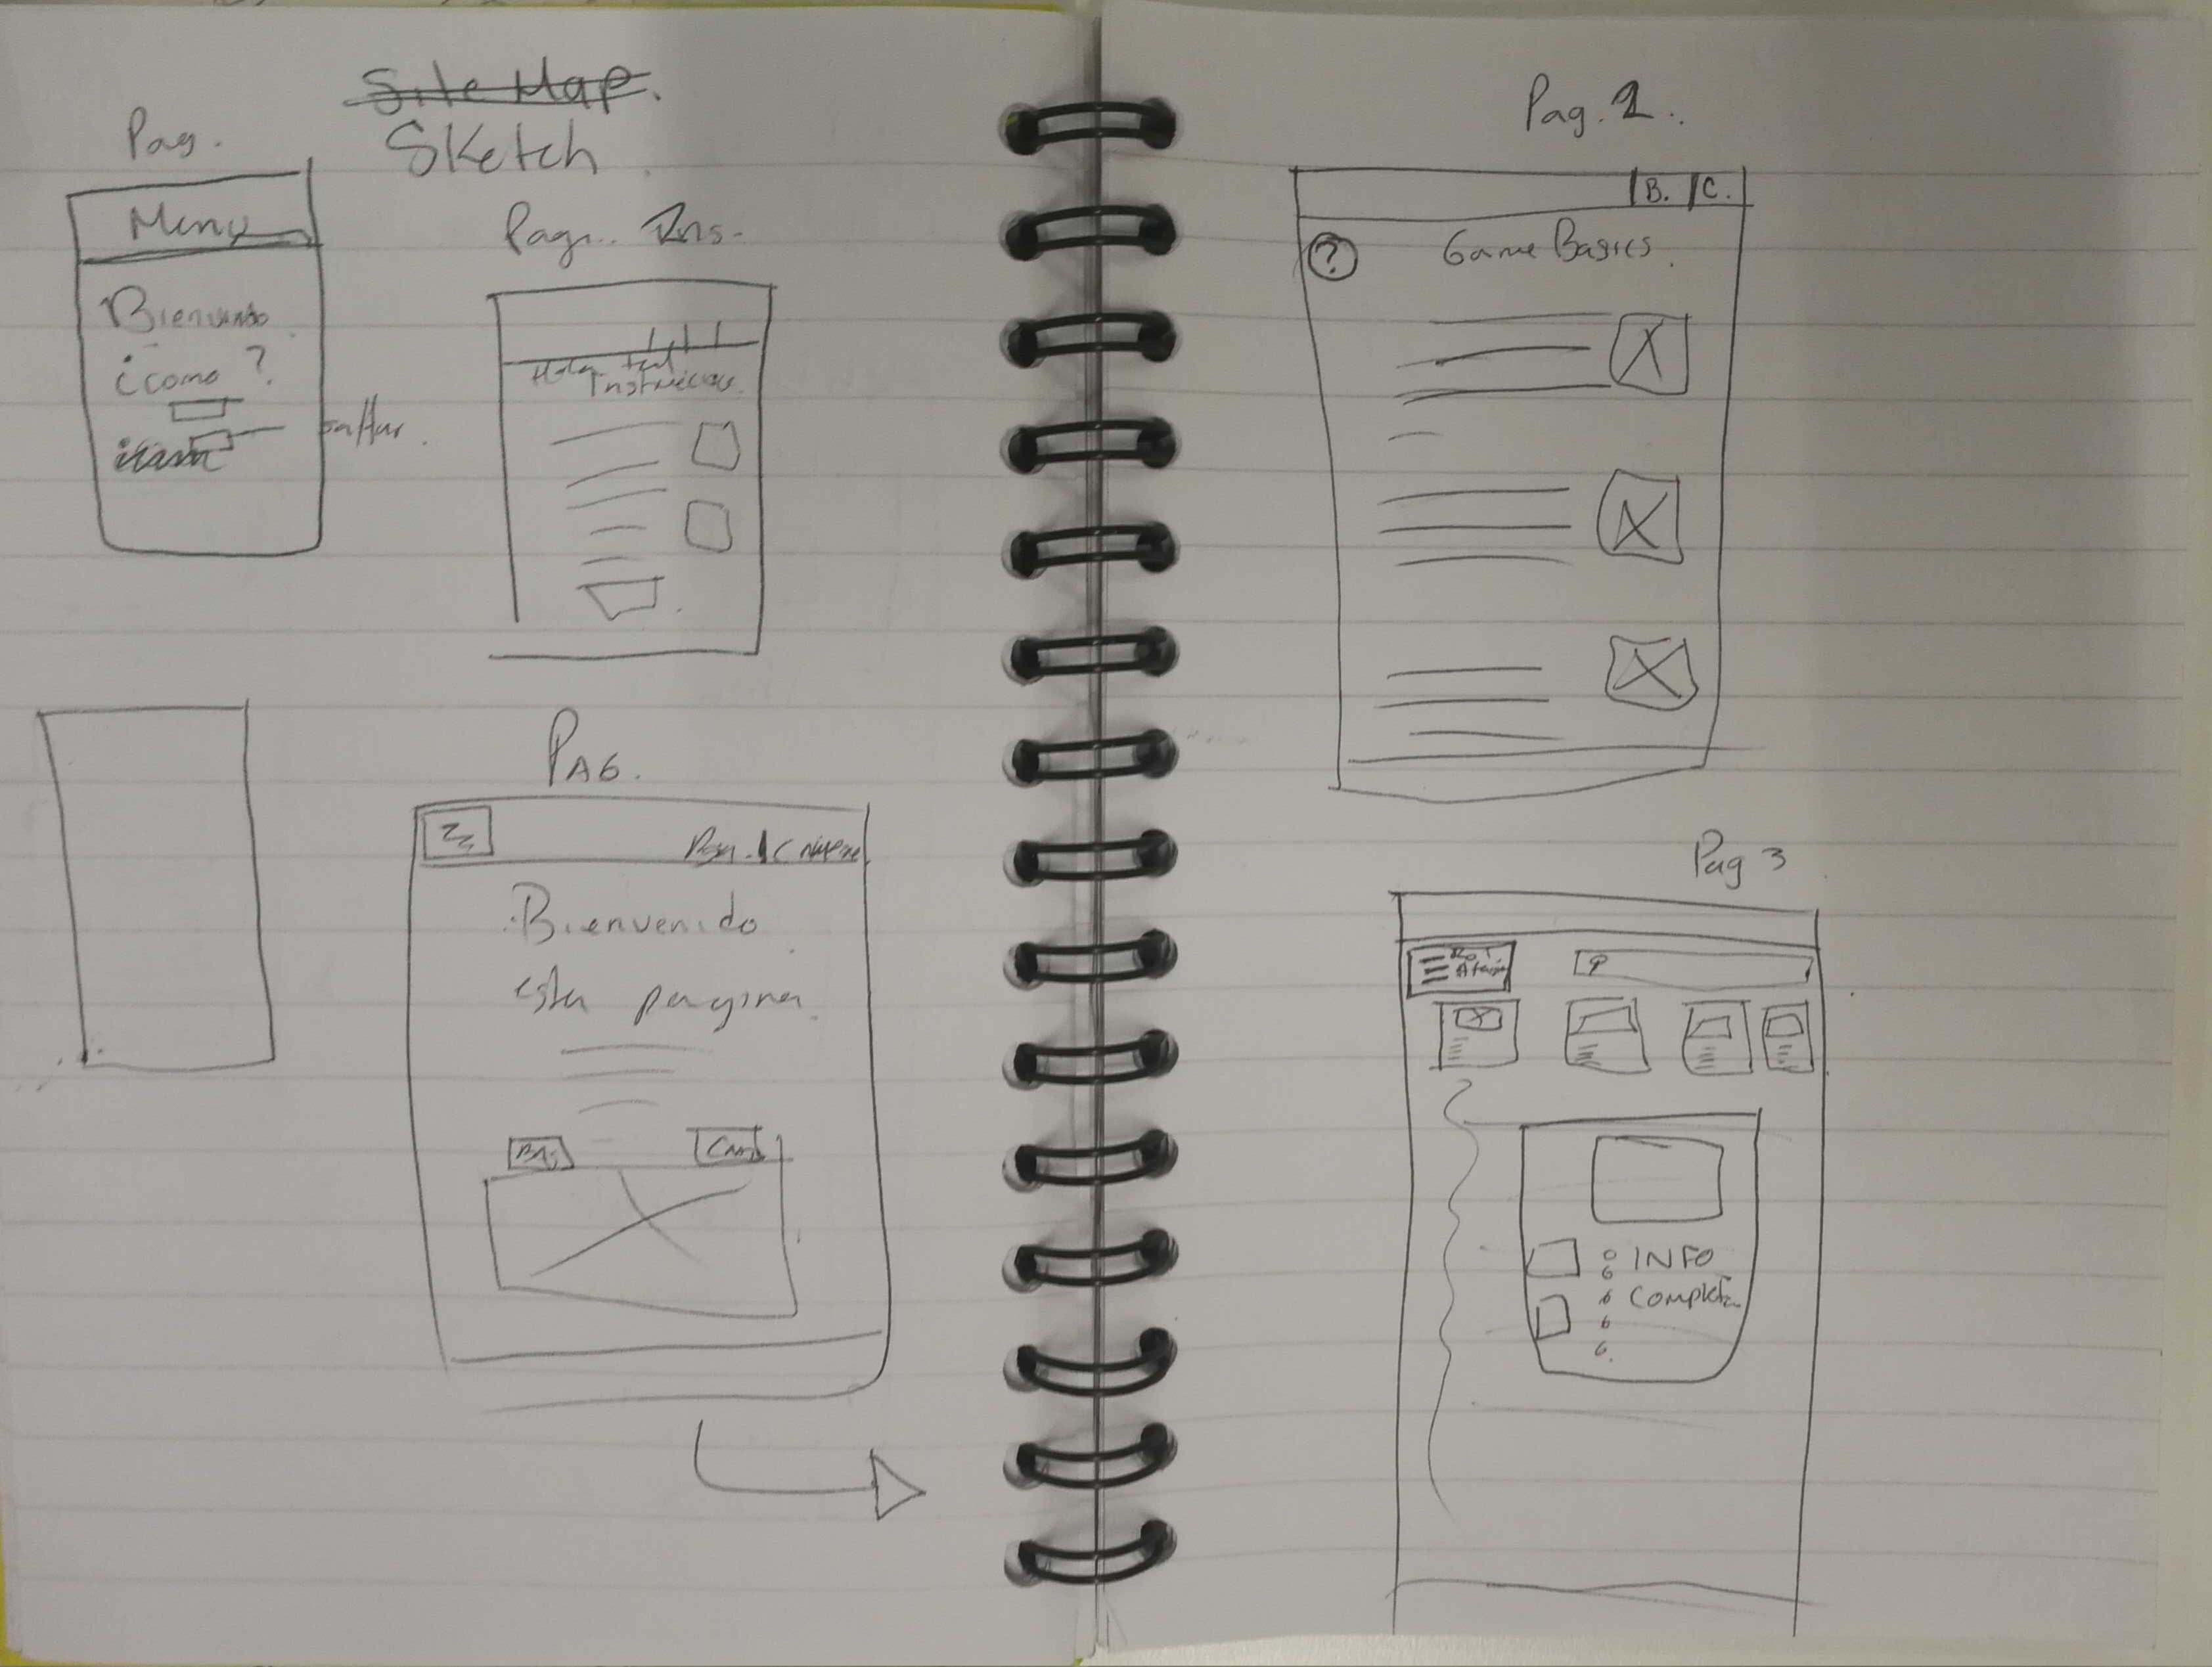 Site Map.
Sketch
Pag.
Menu
Bienvenido
¿como ?
saltar.
Pag. Ins.
Instruccions
PAG.
Bienvenido
esta pagina
BA
Card
Pag. 2.
B. C.
? Game Basics
Pag 3
INFO
Completa